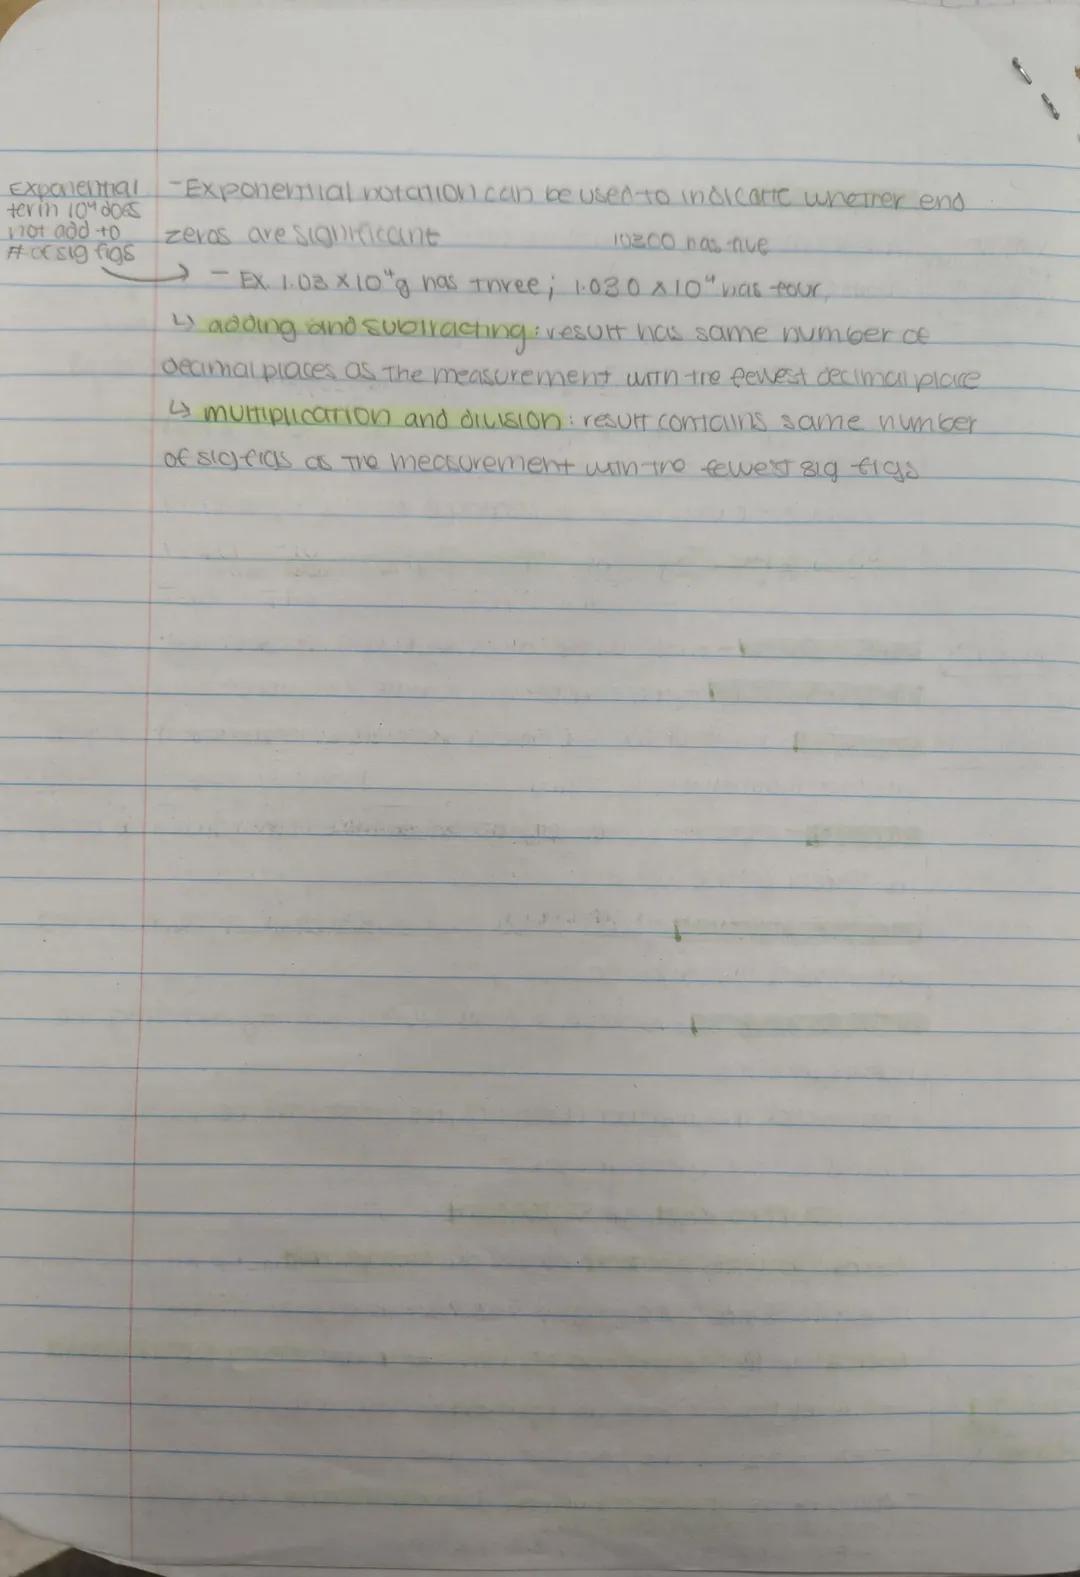 Exponential
term 10⁴ does
not add to
# of sig figs
- Exponential notation can be used to indicate whether end
zeros are significant
10300 has five
- Ex. 1.03 x 10⁴g has three; 1.030 x 10⁴ has four,
↳ adding and subtracting: result has same number of
decimal places as the measurement with the fewest decimal place
↳ multiplication and division: result contains same number
of sig figs as the measurement with the fewest sig figs